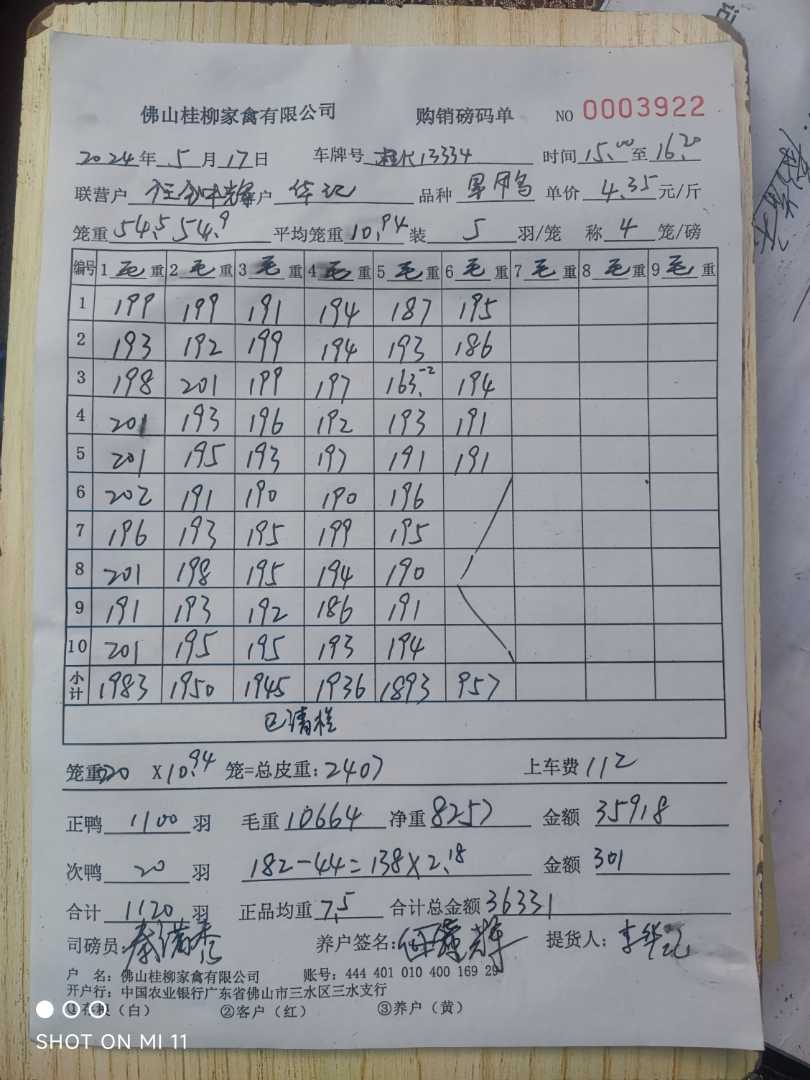 佛山桂柳家禽有限公司 购销磅码单 NO 0003922
2024年5月17日 车牌号 13334 时间15.00至16.20
联营户 户 华记 品种 单价 4.35 元/斤
笼重54.5 54.9 平均笼重10.94装 5 羽/笼 称 4 笼/磅
编号 1毛重 2毛重 3毛重 4毛重 5毛重 6毛重 7毛重 8毛重 9毛重
1 199 199 191 194 187 195
2 193 192 199 194 193 186
3 198 201 199 197 163.-2 194
4 201 193 196 192 193 191
5 201 195 193 197 191 191
6 202 191 190 190 196
7 196 193 195 199 195
8 201 198 195 194 190
9 191 193 192 186 191
10 201 195 195 193 194
小计 1983 1950 1945 1936 1893 957
已清栏
笼重220 X10.94 笼=总皮重:2407 上车费112
正鸭 1100 羽 毛重10664 净重8257 金额 35918
次鸭 20 羽 182-44=138X2.18 金额 301
合计 1120 羽 正品均重7.5 合计总金额36331
司磅员: 养户签名: 提货人:李华记
户 名:佛山桂柳家禽有限公司 账号:444 401 010 400 169 29
开户行:中国农业银行广东省佛山市三水区三水支行
①存根(白) ②客户(红) ③养户(黄)
SHOT ON MI 11